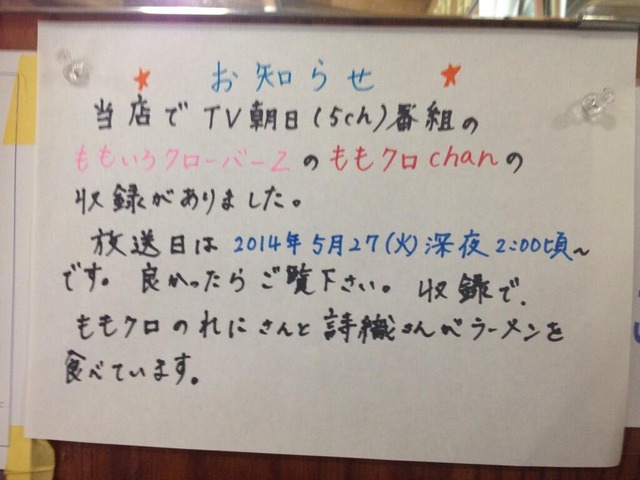 ★ お知らせ ★
当店でTV朝日(5ch)番組の
ももいろクローバーZのももクロchanの
収録がありました。
放送日は2014年5月27(火)深夜2:00頃~
です。良かったらご覧下さい。収録で、
ももクロのれにさんと詩織さんがラーメンを
食べています。